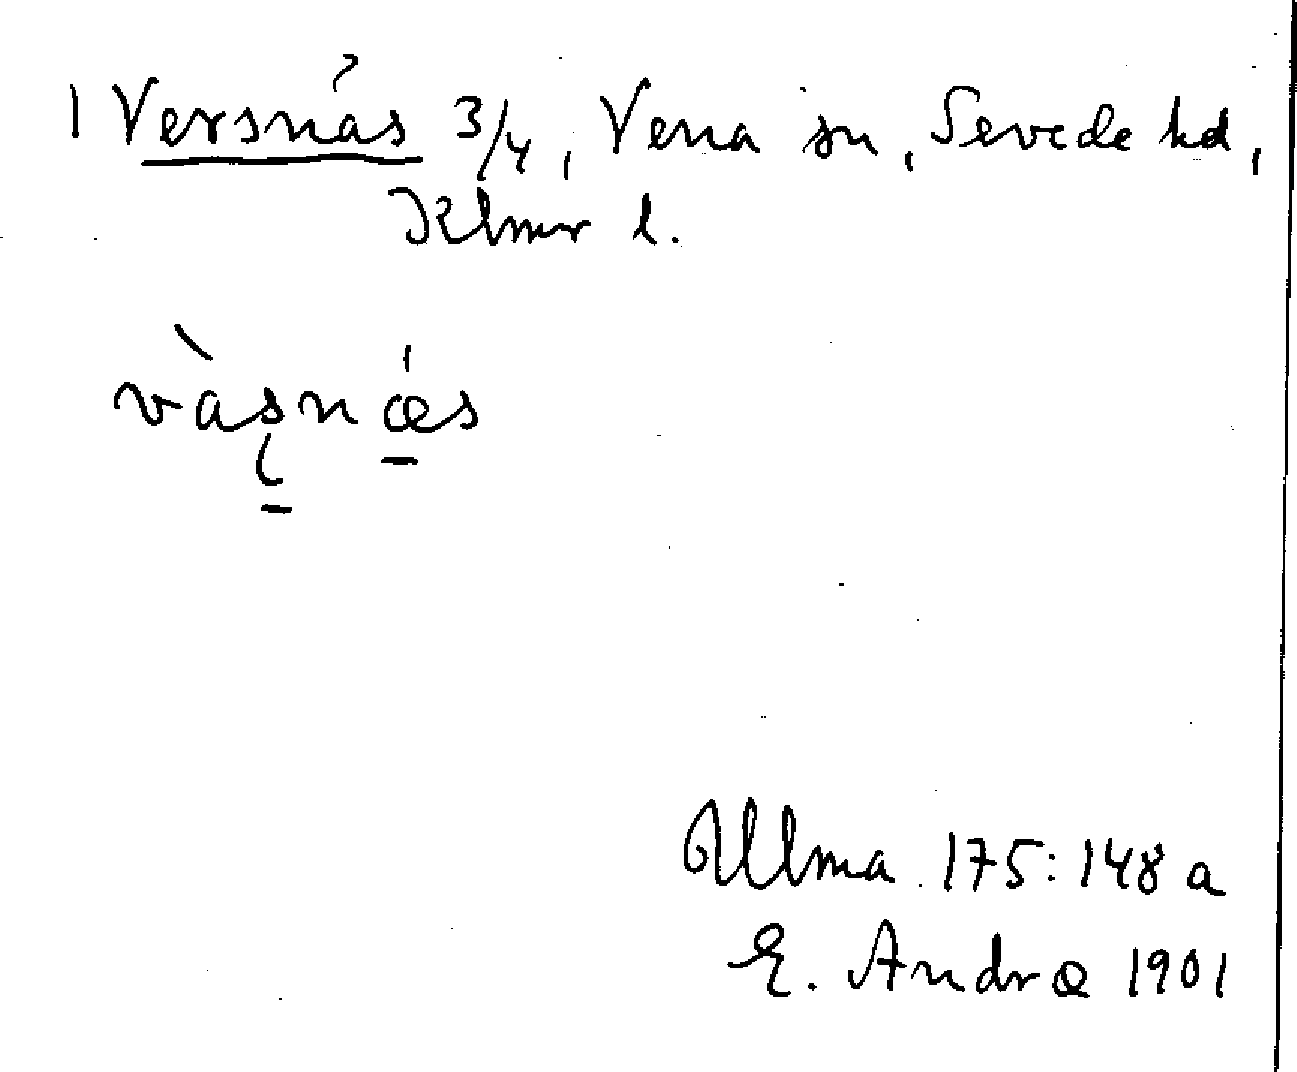 1 Versnäs 3/4, Vena sn, Sevede hd,
Klmr l.
vàs̨næs
Ulma 175:148 a
E. Andræ 1901